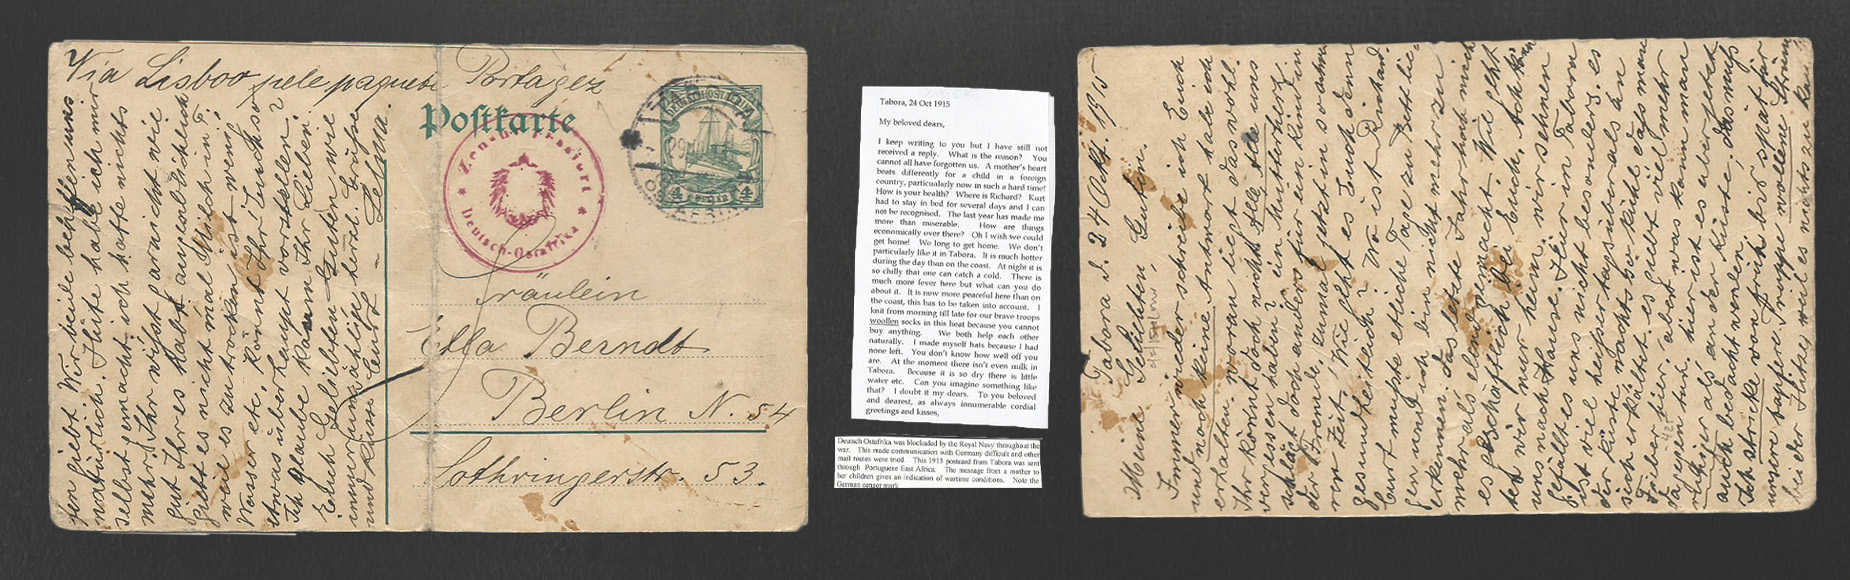 Via Lisboa pele paquete Portugez
Postkarte
DEUTSCH-OSTAFRIKA
4 HELLER 4
Zensur passiert
* Deutsch-Ostafrika *
Fräulein
Ella Berndt
Berlin N. 54
Lothringerstr. 53.
zen giebt. Wir teile beheffen uns
natürlich. Hüte habe ich mir
selbst gemacht, ich hatte nichts
mehr. Ihr wisst gar nicht wie
gut Ihr es habt augenblicklich
giebt es nicht mal Milch in T.
weil es zu trocken ist, wenig
Wasser etc. könnt Ihr Euch so
etwas überhaupt vorstellen?
Ich glaube kaum Ihr Lieben.
Euch Geliebten Guten wie
immer unzählige herzl. Grüße
und Küsse Curt – Selma.
Tabora, 24 Oct 1915
My beloved dears,
I keep writing to you but I have still not
received a reply. What is the reason? You
cannot all have forgotten us. A mother's heart
beats differently for a child in a foreign
country, particualarly now in such a hard time!
How is your health? Where is Richard? Kurt
had to stay in bed for several days and I can
not be recognised. The last year has made me
more than miserable. How are things
economically over there? Oh I wish we could
get home! We long to get home. We don't
particularly like it in Tabora. It is much hotter
during the day than on the coast. At night it is
so chilly that one can catch a cold. There is
much more fever here but what can you do
about it. It is now more peaceful here than on
the coast, this has to be taken into account. I
knit from morning till late for our brave troops
woollen socks in this heat because you cannot
buy anything. We both help each other
naturally. I made myself hats because I had
none left. You don't know how well off you
are. At the moment there isn't even milk in
Tabora. Because it is so dry there is little
water etc. Can you imagine something like
that? I doubt it my dears. To you beloved
and dearest, as always innumerable cordial
greetings and kisses,
Deutsch Ostafrika was blockaded by the Royal Navy throughout the
war. This made communication with Germany difficult and other
mail routes were tried. This 1915 postcard from Tabora was sent
through Portuguese East Africa. The message from a mother to
her children gives an indication of wartime conditions. Note the
German censor mark
Tabora d. 24 Okt. 1915
Meine Geliebten, Guten.
Immer wieder schreibe ich Euch
und noch keine Antwort habe ich
erhalten. woran liegt das wohl.
Ihr könnt doch nicht alle uns
vergessen haben? ein Mutterherz
schlägt doch anders für ein Kind in
der Fremde, zumal jetzt in so
rer Zeit. Wie geht es Euch denn
gesundheitlich? Wo ist Richard.
Curt mußte etliche Tage zu Bett lie-
gen und ich bin nicht mehr zu
erkennen, das letzte Jahr hat mich
mehr als elend gemacht. Wie geht
es geschäftlich bei Euch. Ach
ten wir nur heim, wir sehnen
uns nach Hause. Hier in Tabora
gefällt es uns nicht besonders. es
ist viel heißer tagsüber als an
der Küste nachts so kühl daß man
sich erkältet. es giebt viel mehr
Fieber hier, aber was kann man
dagegen tun. hier ist es
ruhiger als an der Küste. das muß
auch bedacht werden.
Ich stricke von früh bis spät für
unsere tapfre Truppe wollene Strüm
bei der Hitze, weil es nichts zu kau